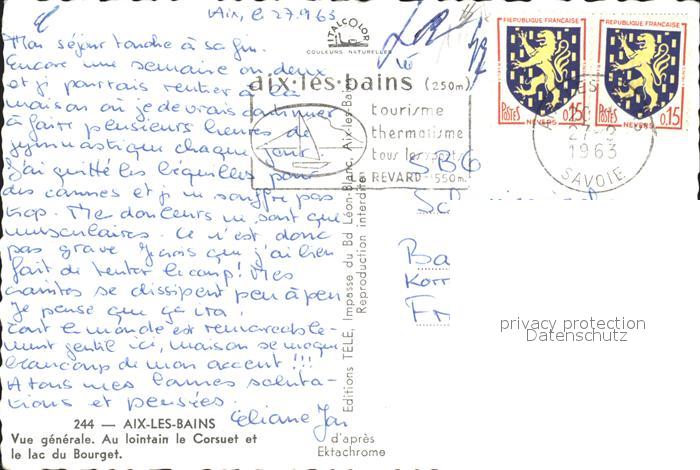 Aix, le 27.9.63
Mon séjour touche à sa fin.
Encore une semaine ou deux
et je pourrais rentrer à la
maison où je devrais continuer
à faire plusieurs heures de
gymnastique chaque jour
J'ai quitté les béquilles pour
des cannes et je ne souffre pas
trop. Mes douleurs ne sont que
musculaires. Ce n'est donc
pas grave. Je crois que j'ai bien
fait de tenter le coup! Mes
craintes se dissipent peu à peu
Je pense que ça ira.
Tout le monde est remarquable-
ment gentil ici, mais on se moque
beaucoup de mon accent!!!
A tous mes bonnes saluta-
tions et pensées.
Eliane
244 — AIX-LES-BAINS
Vue générale. Au lointain le Corsuet et
le lac du Bourget.
ITALCOLOR
COULEURS NATURELLES
Editions TELE, Impasse du Bd Léon-Blanc, Aix-les-Bains
Reproduction interdite
d'après
Ektachrome
aix·les·bains (250m)
tourisme
thermalisme
tous les sports
REVARD 1550m
REPUBLIQUE FRANÇAISE
POSTES 0,15
NEVERS
REPUBLIQUE FRANÇAISE
POSTES 0,15
NEVERS
27-9
1963
SAVOIE
SBG
Sc
Ba
Kor
Fr
privacy protection
Datenschutz